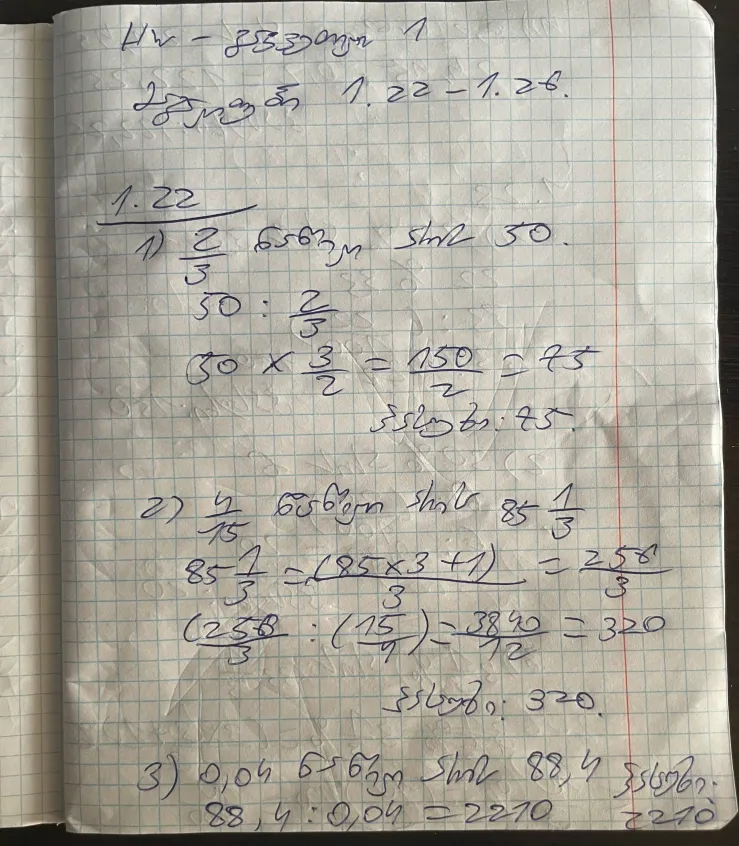 HW - გვერდი 1
1.22 - 1.26.
1.22
1) 2/3 ნაწილი არის 50.
50 : 2/3
50 × 3/2 = 150/2 = 75
პასუხი: 75.
2) 4/15 ნაწილი არის 85 1/3
85 1/3 = (85×3+1)/3 = 256/3
(256/3 : (15/4) = 3840/12 = 320
პასუხი: 320.
3) 0,04 ნაწილი არის 88,4 პასუხი:
88,4 : 0,04 = 2210 2210